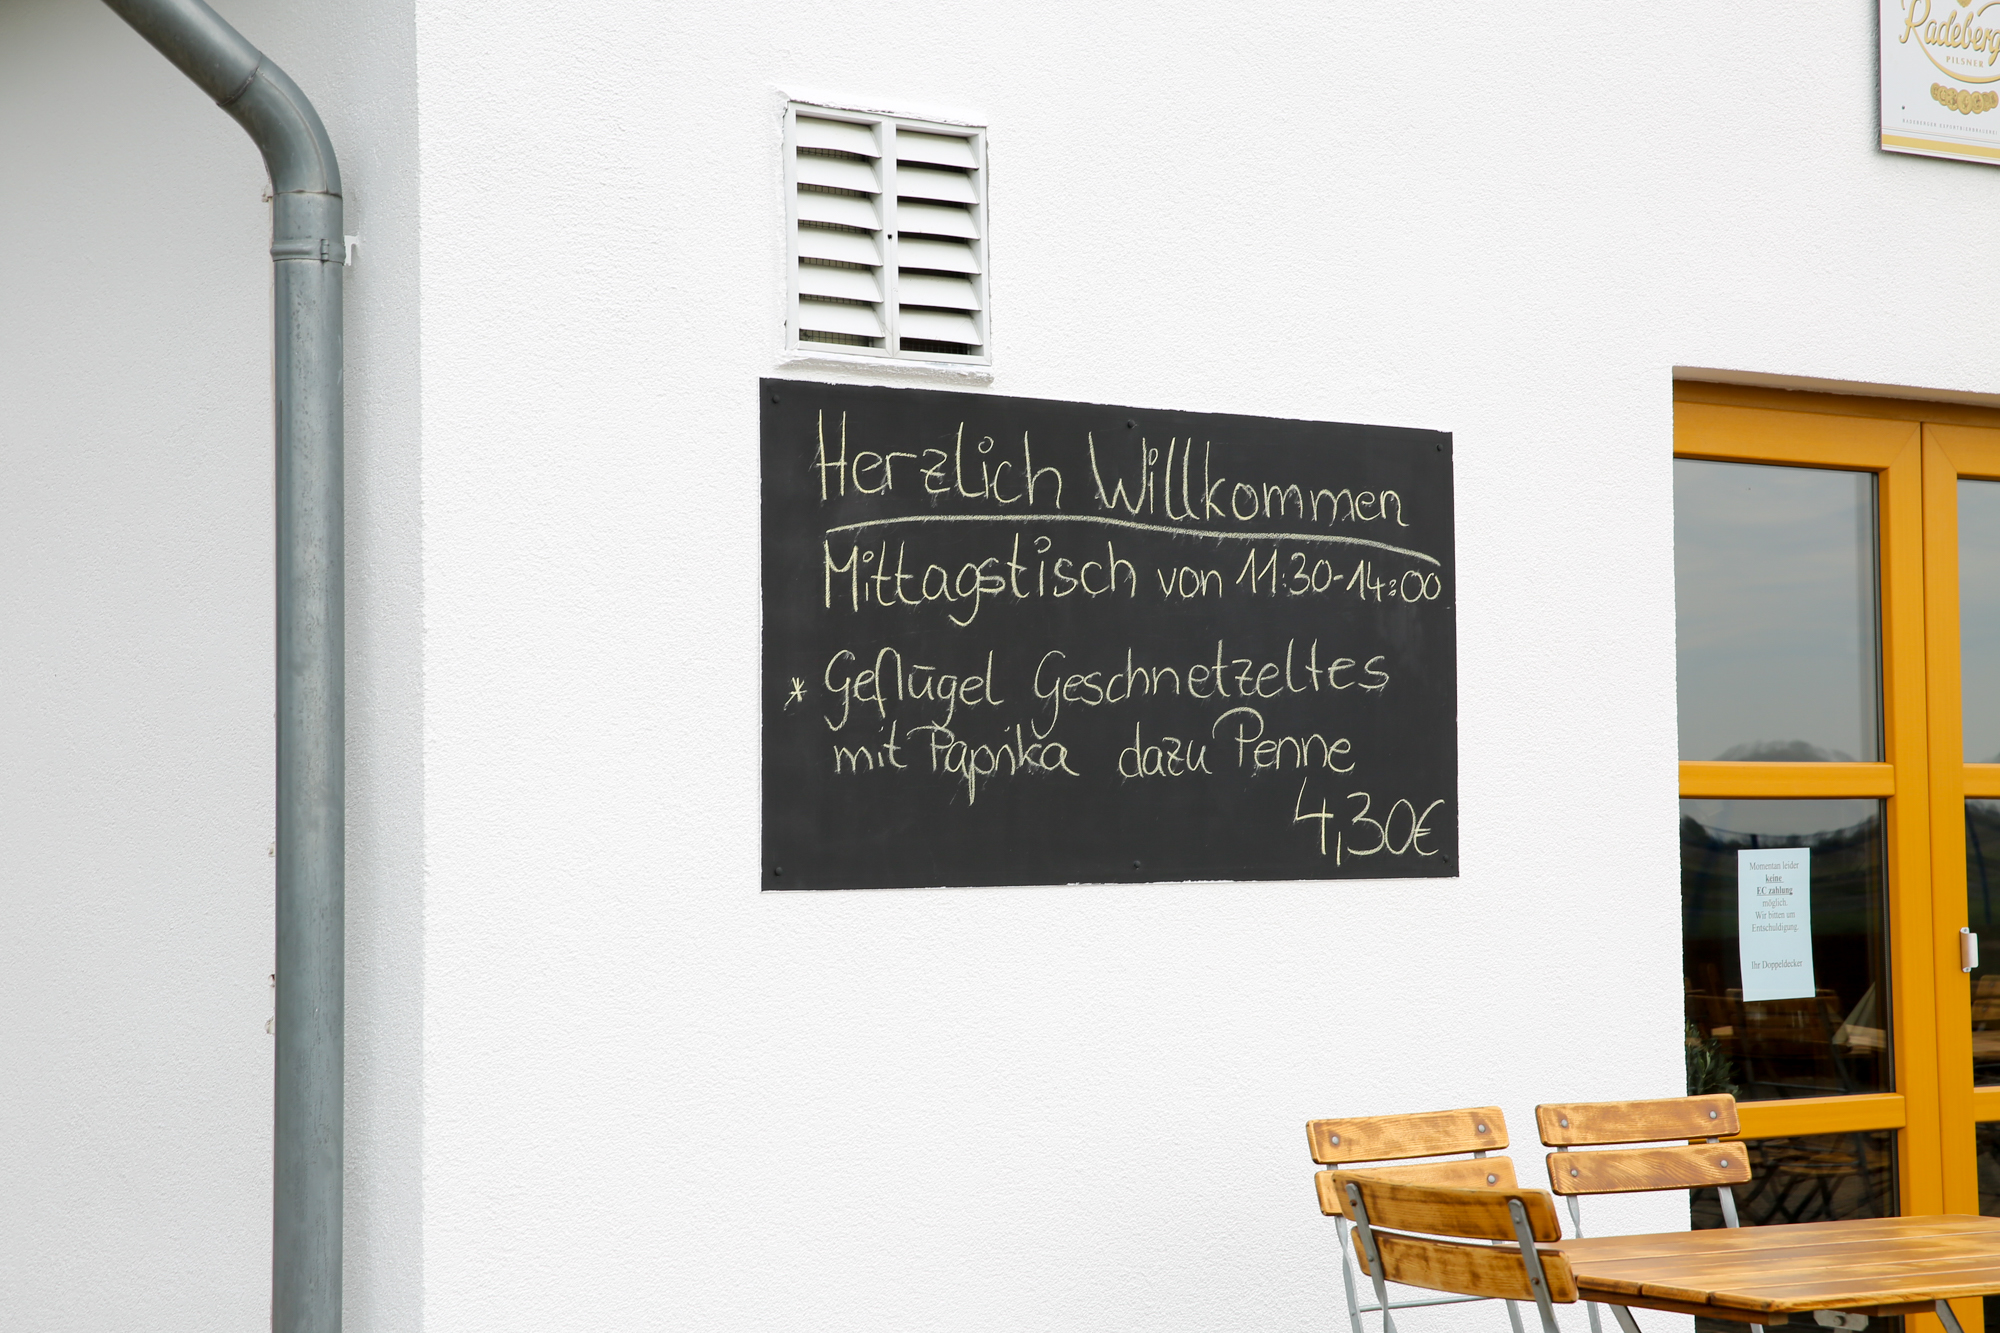 Radeberg
PILSNER
Herzlich Willkommen
Mittagstisch von 11:30-14:00
* Geflügel Geschnetzeltes
mit Paprika dazu Penne
4,30€
Momentan leider
keine
EC zahlung
möglich.
Wir bitten um
Entschuldigung.
Ihr Doppeldecker